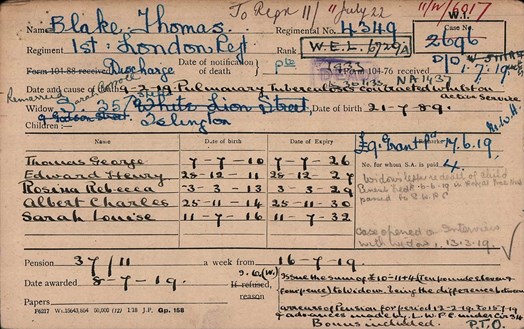 To Regn 11/ July 22
11/W/6817
Name Blake, Thomas.
Regimental No. 4349
W.I.
Regiment 1st: London Regt
Rank Pte
W.E.L. 6729A
Case No. 2696
Form 104-88 received Discharge
Date of notification of death
Form 104-76 received
NA1437
1.7.19.
Date and cause of death 2-19. Pulmonary Tuberculosis contracted whilst on active service.
Remarried
Widow S. 357 White Lion Street,
Date of birth 21-7-89.
Islington
Children:—
Name
Date of birth
Date of Expiry
Remarks
£9. Grant Pd 17.6.19.
No. for whom S.A. is paid 4.
Thomas George 7-7-10 7-7-26
Edward Henry 25-12-11 25-12-27
Rosina Rebecca 3-3-13 3-3-29
Albert Charles 25-11-14 25-11-30
Sarah Louise 11-7-16 11-7-32
Case opened on Interview
with widow, 13.3.19.
Pension 37/11 a week from 16-7-19.
Date awarded 8-7-19.
If refused, reason
Issue the sum of £10-11-4 (Ten pounds eleven & fourpence) to Widow, being the difference between
arrears of Pension for period 12-2-19 to 15-7-19
& advances made by L.W.P.
Papers
Bonus included.
P.T.O.
F6277 Wt. 35643/654 50,000 (12) 1/18 J.P. Gp. 158